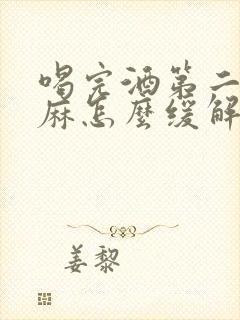 喝完酒第二
麻怎麼缓解
姜黎